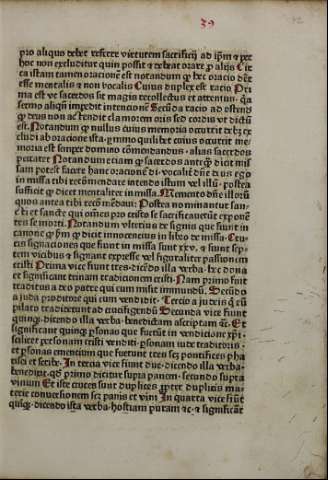 39
pro aliquo debet referre virtutem sacrificij ad ip̄m ⁊ per
hoc non excluditur quin possit ⁊ debeat orare ꝓ alijs Cir
ca istam tamen orationē est notandum ꝙ hec oracio dēt
esse mentalis ⁊ non vocalis Cuius duplex est racio Pri
ma est vt sacerdos sit magis recollectus et attentus. q̄a
sermo aliqn̄ impedit intencionē Secūda racio ad ostend
ꝙ deus non attendit clamorem oris sed cordis vt dictū
est. Notandum ꝙ nullus cuius memoria occurrit debz ex
cludi ab oracione ista. ymmo quilibet cuius occurrit me
moria est semper domino cōmendandus. alias sacerdos
peccaret Notandum etiam ꝙ sacerdos anteꝗ̄ dicit mis
sam potest facere hanc oracionē dī. vocalit̄ dn̄e deus ego
in missa tibi recōmendare intendo istum vel illū. postea
sufficit ꝙ dicet mentaliter in missa. Memento dn̄e illorū
quos antea tibi recōmēdaui: Postea nominantur san-
cti et sancte qui om̄es pro cristo se sacrificauerūt exponē
tes se morti. Notandum vlterius de signis que fiunt in
canone ꝙ ꝓm̄ ꝙ dicit innocencius in libro de missa. Cru-
cis signaciones que fiunt in missa sunt xxv. ⁊ fiunt sep-
tem vicibus ⁊ signant expresse vel figuraliter passionem
cristi Prima vice fiunt tres. dicēdo illa verba. hec dona
et significant trinam tradicionem cristi. Nam primo fuit
traditus a deo patre qui cum misit immundū. Secūdo
a iuda proditore qui eum vendidit. Tercio a iudeis q̄ eū
pilato tradiderunt ad crucifigendū Secunda vice fiunt
quinꝗ. dicendo illa verba. benedictam ascriptam ⁊c. Et
significant quinꝗ ꝑsonas que fuerūt in vendicione xp̄i.
scilicet personam cristi venditi. ꝑsonam iude traditoris.
et ꝑsonas emencium que fuerunt tres scz pontifices pha
risei et scribe. In tercia vice fiunt due. dicendo illa verba.
benedixit. qd̄ primo dicitur supra panem. secundo supra
vinum Et iste cruces sunt duplices ꝓpter duplicis ma-
terie conuersionem scz panis et vini In quarta vice fiūt
quinꝗ. dicendo ista verba. hostiam puram ⁊c. ⁊ significāt